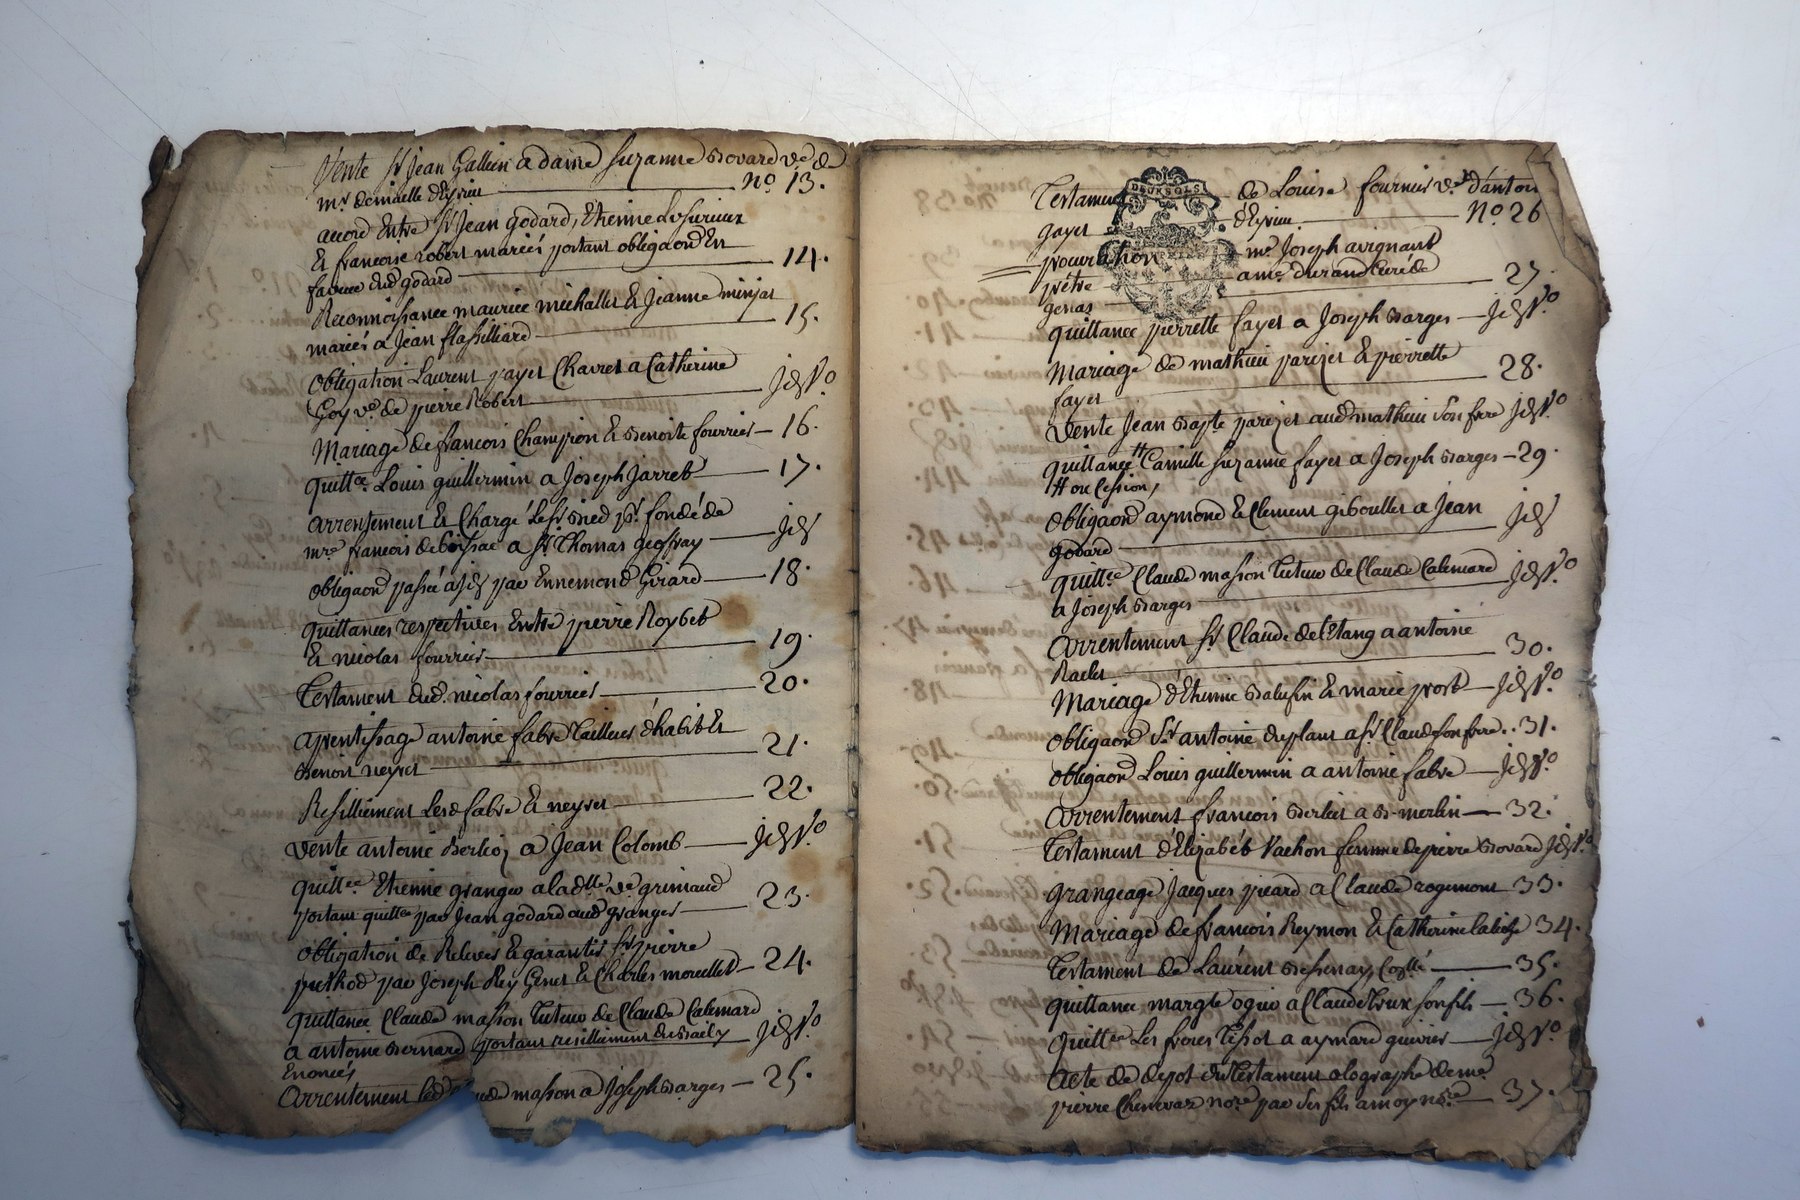 Vente Sr Jean Gallien a dame Suzanne Bovard ve de
mr demiaelle d'Eyrieu no 13.
accord Entre Sr Jean godard, Etienne
Et francoise robert mariés portant obligaon En
faveur dud godard 14.
Reconnoissance maurice michallet & Jeanne minjat
mariés a Jean flassilliard 15.
obligation Laurent payet Charret a Catherine
Goy ve de pierre Robert id Vo
Mariage de francois Champion & Benoite fourrier 16.
quittce Louis guillermin a Joseph Jarret 17.
arrentement & Charge Le Sr Bied pr fondé de
mre francois de boissac a Sr Thomas geoffray id
obligaon passée a id par Ennemond Girard 18.
quittances respectives Entre pierre Roybet
& nicolas fourrier 19.
Testament dud. nicolas fourrier 20.
aprentissage antoine fabre Tailleur d'habits Et
Benoit neyret 21.
Resilliement Lesd fabre & neyret 22.
Vente antoine Berlioz a Jean Colomb id Vo
quittce Etienne granger a la dlle ve grimaud
portant quittce par Jean godard aud granger 23.
obligation de Relever & garantir Sr pierre
pethod par Joseph Rey Genet & Charles morellet 24.
quittance Claude masson Tuteur de Claude Calemard
a antoine Bernard portant resilliement du Bail y id Vo
Enoncés
Arrentement led masson a Joseph Barges 25.
Testament de Louise fournier ve d'anton
gayet d'Eyrieu No 26
procuration mre Joseph avignant
prêtre a mre durand Curé de
genas 27.
quittance pierrette fayet a Joseph Barges id Vo
Mariage de mathieu parizet & pierrette
fayet 28.
Vente Jean Bapte parizet aud mathieu son frere id Vo
quittance # Camille Suzanne fayet a Joseph Barges 29.
# ou Cession,
obligaon aymond & Clement giboullet a Jean
godard id
quittce Claude masson Tuteur de Claude Calemard
a Joseph Barges id Vo
Arrentement Sr Claude de L'Etang a antoine
Raclet 30.
Mariage d'Etienne Balufin & marie prost id Vo
obligaon Sr antoine duplant a Sr Claude son frere 31.
obligaon Louis guillermin a antoine fabre id Vo
Arrentement francois Berliet a Br merlin 32.
Testament d'Elizabét Vachon femme de pierre Bovard id Vo
Grangeage Jacques picard a Claude rogemont 33.
Mariage de francois Reymon & Catherine 34.
Testament de Laurent Bessenay 35.
quittance margte ogier a Claude son fils 36.
quittce Les freres Tissot a aymard guivier id Vo
Acte de depot du Testament olographe de mre
pierre Chenevaz nore par ses fils a moy nore 37.